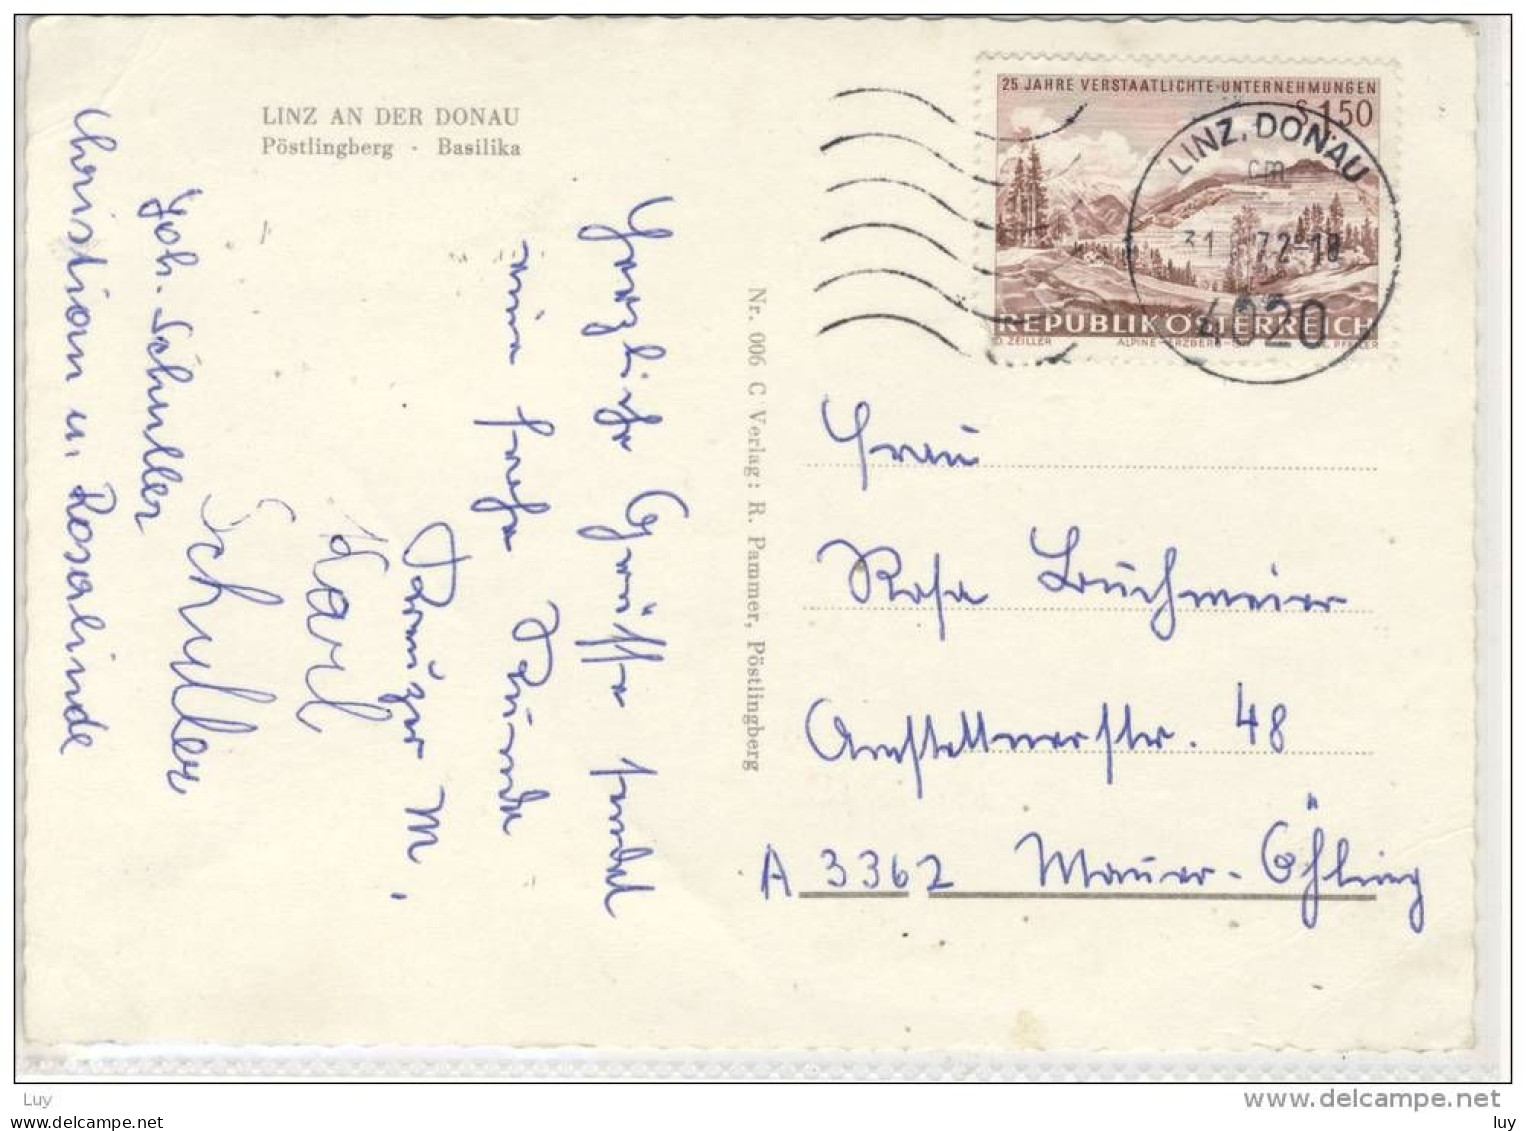 LINZ AN DER DONAU
Pöstlingberg · Basilika
Herzliche Grüsse sendet
eine frohe Runde
M.
Karl
Schuller
Joh. Schuller
Christian u. Rosalinde
Nr. 006 C Verlag: R. Pammer, Pöstlingberg
25 JAHRE VERSTAATLICHTE·UNTERNEHMUNGEN
S 1,50
REPUBLIK ÖSTERREICH
O. ZEILLER ALPINE-ERZBERG
LINZ, DONAU
cm
72-18
4020
Frau
Rosa Buchmeier
Amstettnerstr. 48
A 3362 Mauer-Öhling
Luy
delcampe.net
www.delcampe.net
luy